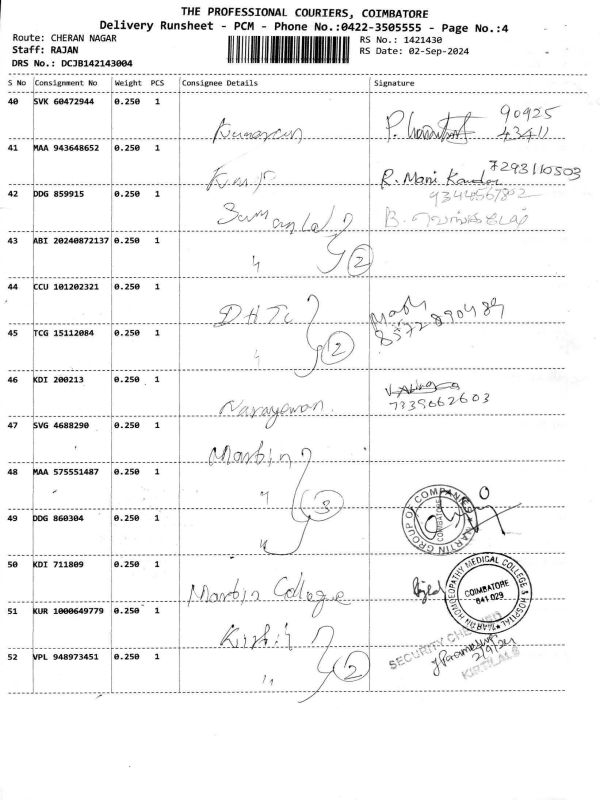 THE PROFESSIONAL COURIERS, COIMBATORE
Delivery Runsheet - PCM - Phone No.:0422-3505555 - Page No.:4
Route: CHERAN NAGAR
Staff: RAJAN
DRS No.: DCJB142143004
RS No.: 1421430
RS Date: 02-Sep-2024
S No Consignment No Weight PCS Consignee Details Signature
40 SVK 60472944 0.250 1
90925
43411
41 MAA 943648652 0.250 1
R. Mani 7293110503
42 DDG 859915 0.250 1
9344567802
B. வெங்கடேஷ்
43 ABI 20240872137 0.250 1
〃 2
44 CCU 101202321 0.250 1
DHTC
45 TCG 15112084 0.250 1
〃 2
46 KDI 200213 0.250 1
Narayanan
7339662603
47 SVG 4688290 0.250 1
Martin
48 MAA 575551487 0.250 1
〃 3
MARTIN GROUP OF COMPANIES
COIMBATORE
49 DDG 860304 0.250 1
〃
50 KDI 711809 0.250 1
Martin College
MARTIN HOMOEOPATHY MEDICAL COLLEGE & HOSPITAL
COIMBATORE
641 029
51 KUR 1000649779 0.250 1
SECURITY CHECKED
52 VPL 948973451 0.250 1
〃 2
2/9/24
KIRTILALS